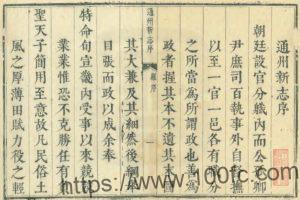 通州新志序
朝廷設官分職內而公孤卿
尹庶司百執事外自督撫
以至一官一邑各有職分
之所當為所謂政也善為
政者握其本不遺其末
通州新志
序
其大兼及其細然後綱舉
目張而政以成余奉
特命旬宣畿內受事以來兢兢
業業惟恐不克勝任有負
聖天子簡用至意故凡民俗土
風之厚薄田賦力役之輕
https://www.100fc.com